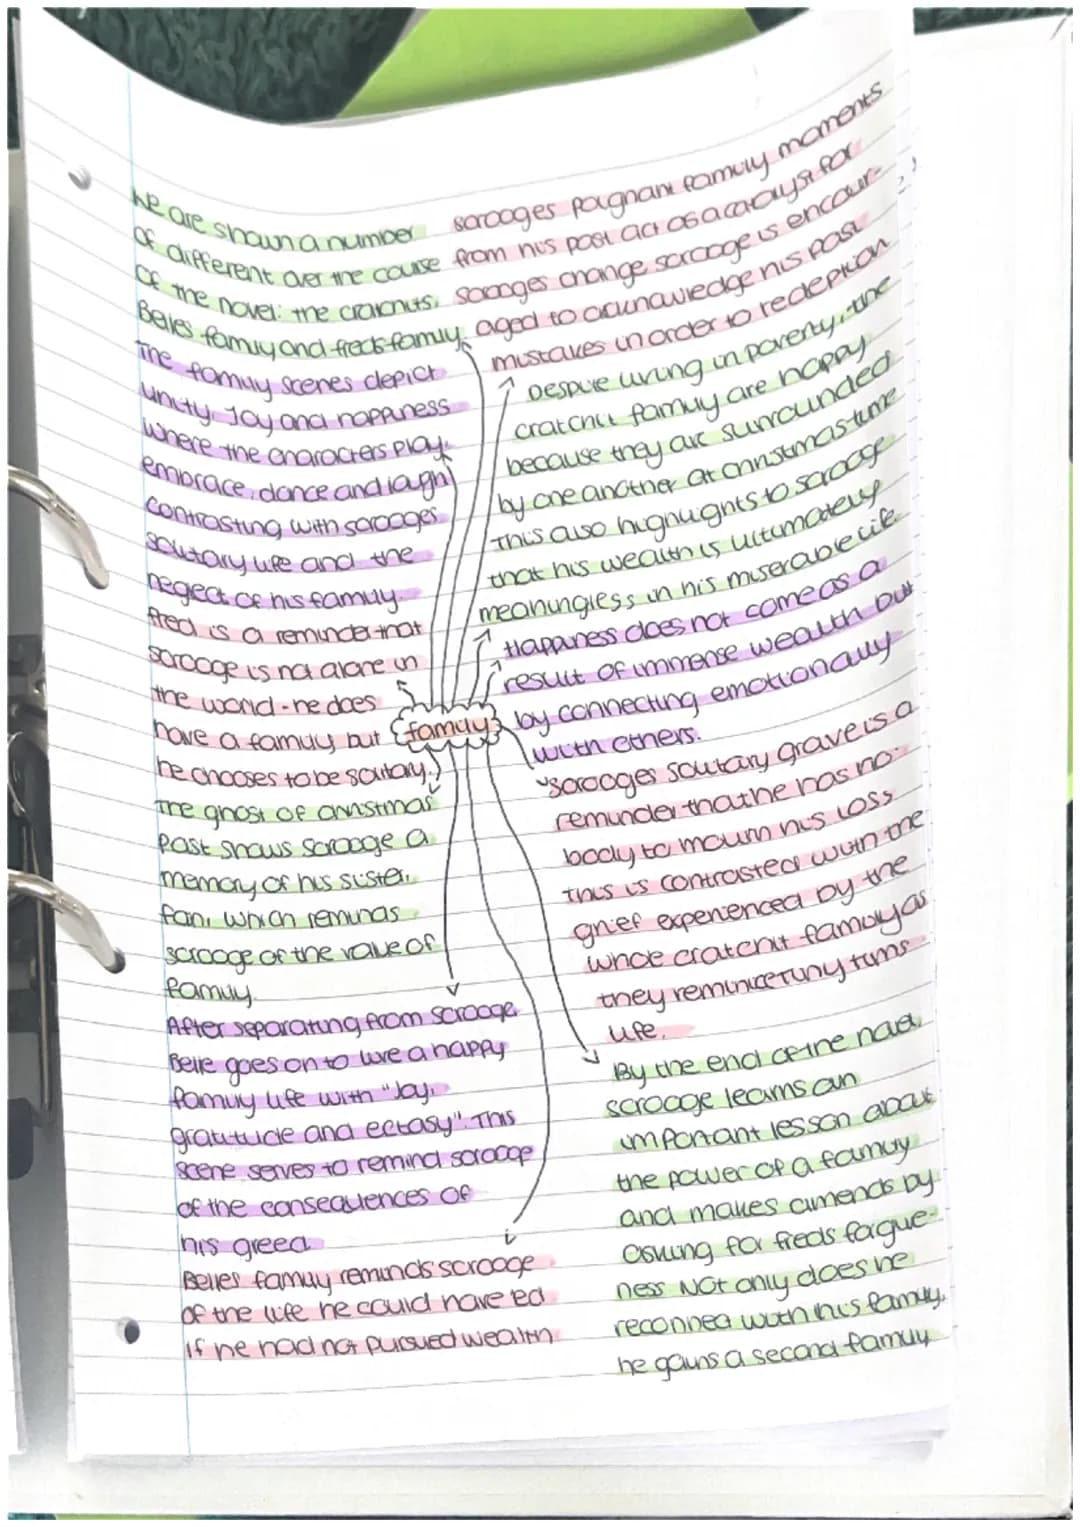 we are shown a number
of different over the course
of the novel: the cratchits,
Belles family and freds family
The family scenes depict
unity, Joy and happiness
where the characters play,
embrace, dance and laugh
contrasting with scrooges
solitary life and the
neglect of his family.
fred is a reminder that
scrooge is not alone in
the world - he does
have a family but
he chooses to be solitary.
The ghost of christmas
past shows scrooge a
memory of his sister,
fan, which reminds
scrooge of the value of
family.
After separating from scrooge
Belle goes on to live a happy
family life with "Joy,
gratitude and ectasy". This
scene serves to remind scrooge
of the consequences of
his greed
Belles family reminds scrooge
of the life he could have led
if he had not pursued wealth
family
scrooges poignant family moments
from his past act as a catalyst for
scrooges change scrooge is encour-
aged to acknowledge his past
mistakes in order to redeption
Despite living in poverty, the
cratchit family are happy
because they are surrounded
by one another at christmas time
This also highlights to scrooge
that his wealth is ultimately
meaningless in his miserable life.
Happiness does not come as a
result of immense wealth but
by connecting emotionally
with others.
scrooges solitary grave is a
reminder that he has no-
body to mourn his loss
this is contrasted with the
grief experienced by the
whole cratchit family as
they reminice tiny tims
life.
By the end of the novel,
scrooge learns an
important lesson about
the power of a family
and makes amends by
asking for freds forgive-
ness Not only does he
reconnect with his family,
he gains a second family